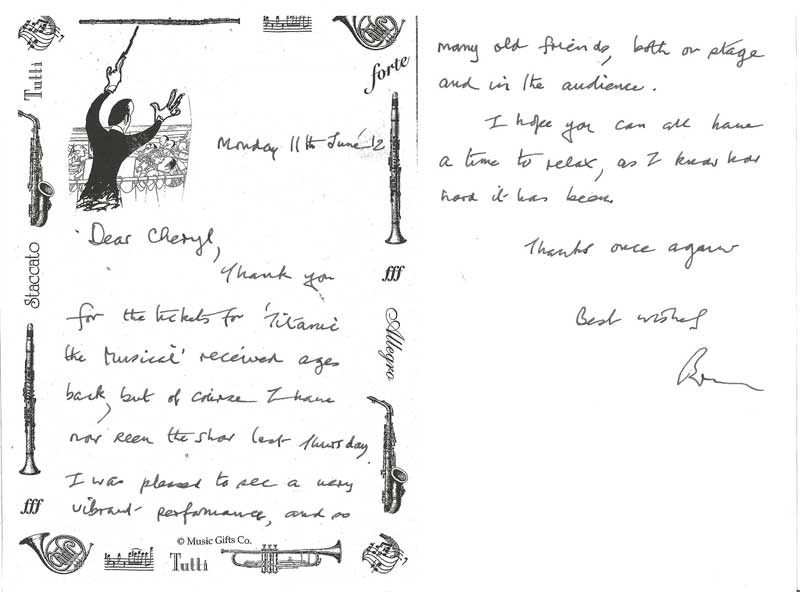 Tutti
forte
Monday 11th June '12
Dear Cheryl,
Thank you
for the tickets for 'Titanic
the Musical' received ages
back, but of course I have
now seen the show last Thursday.
I was pleased to see a very
vibrant performance, and so
Staccato
fff
fff
Allegro
© Music Gifts Co.
Tutti
many old friends, both on stage
and in the audience.
I hope you can all have
a time to relax, as I know how
hard it has been.
Thanks once again
Best wishes